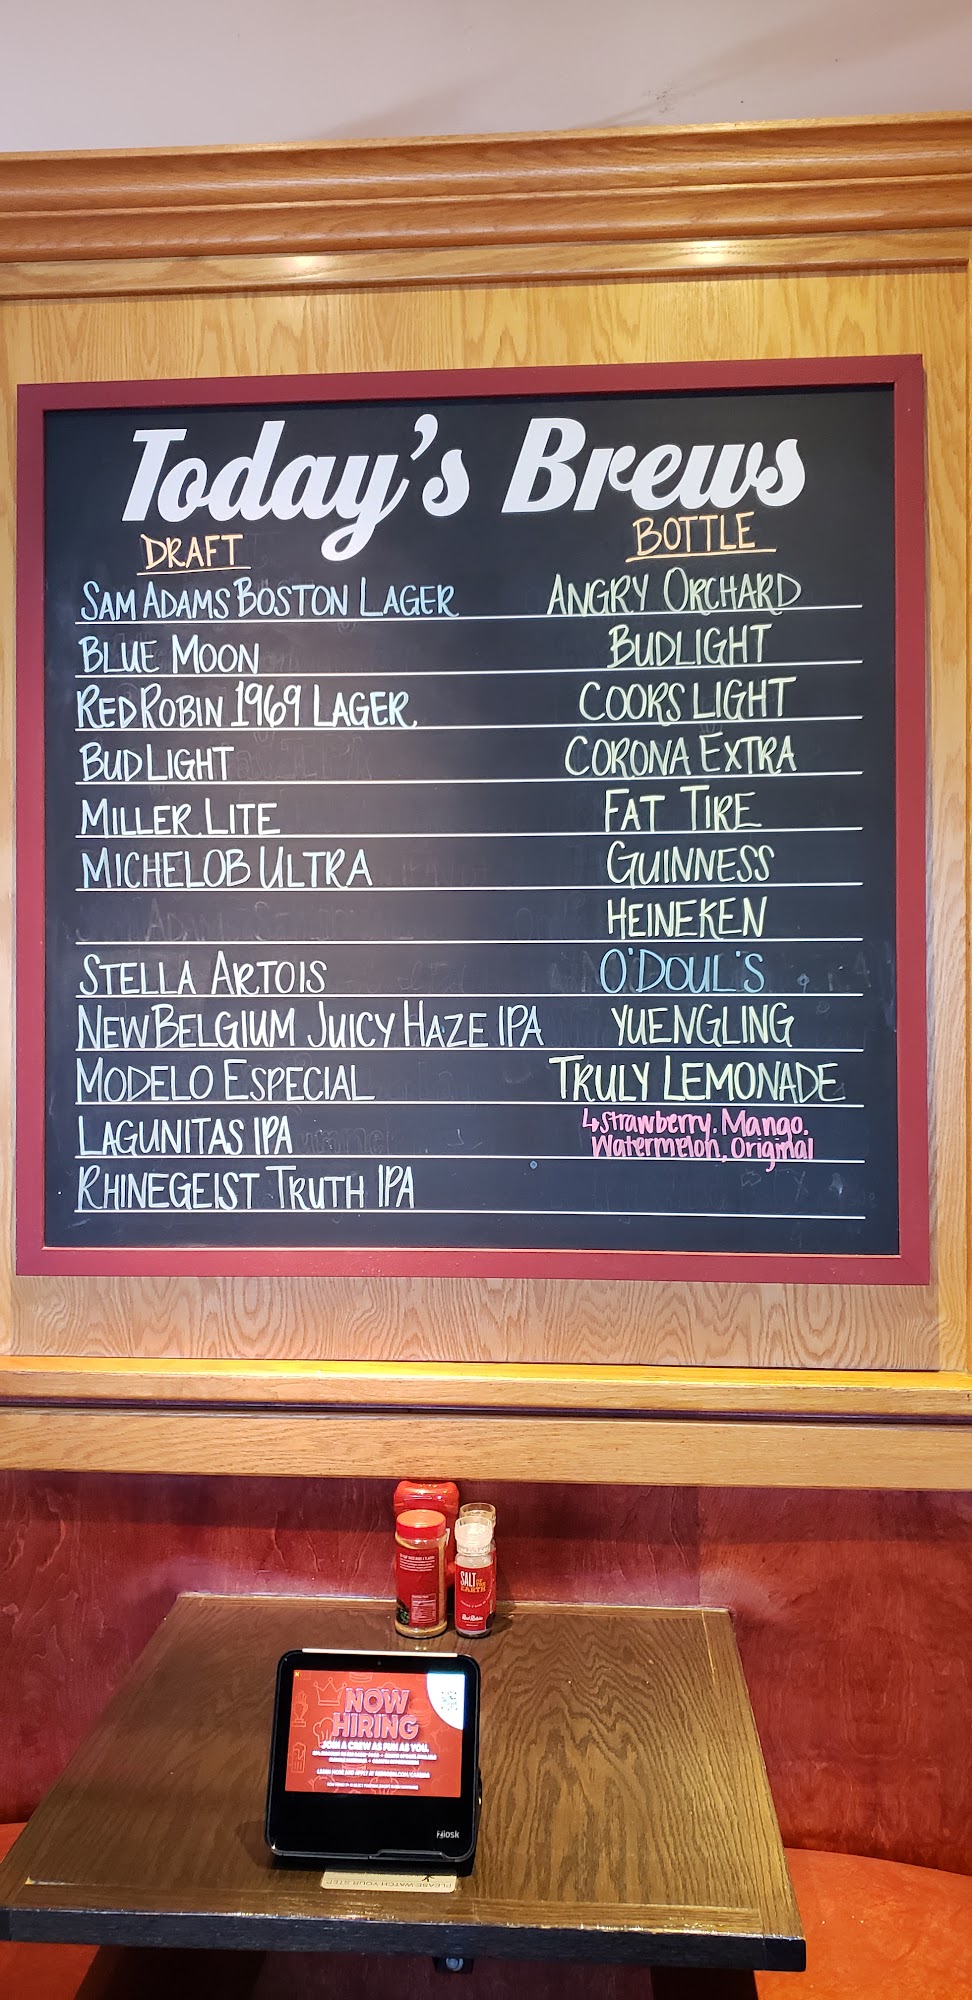 Today's Brews
DRAFT
SAM ADAMS BOSTON LAGER
BLUE MOON
RED ROBIN 1969 LAGER
BUD LIGHT
MILLER LITE
MICHELOB ULTRA
STELLA ARTOIS
NEW BELGIUM JUICY HAZE IPA
MODELO ESPECIAL
LAGUNITAS IPA
RHINEGEIST TRUTH IPA
BOTTLE
ANGRY ORCHARD
BUDLIGHT
COORS LIGHT
CORONA EXTRA
FAT TIRE
GUINNESS
HEINEKEN
O'DOUL'S
YUENGLING
TRULY LEMONADE
↳ Strawberry. Mango.
Watermelon, Original
SALT OF THE
EARTH
Red Robin
NOW
HIRING
JOIN A CREW AS FUN AS YOU.
Ziosk
PLEASE WATCH YOUR STEP